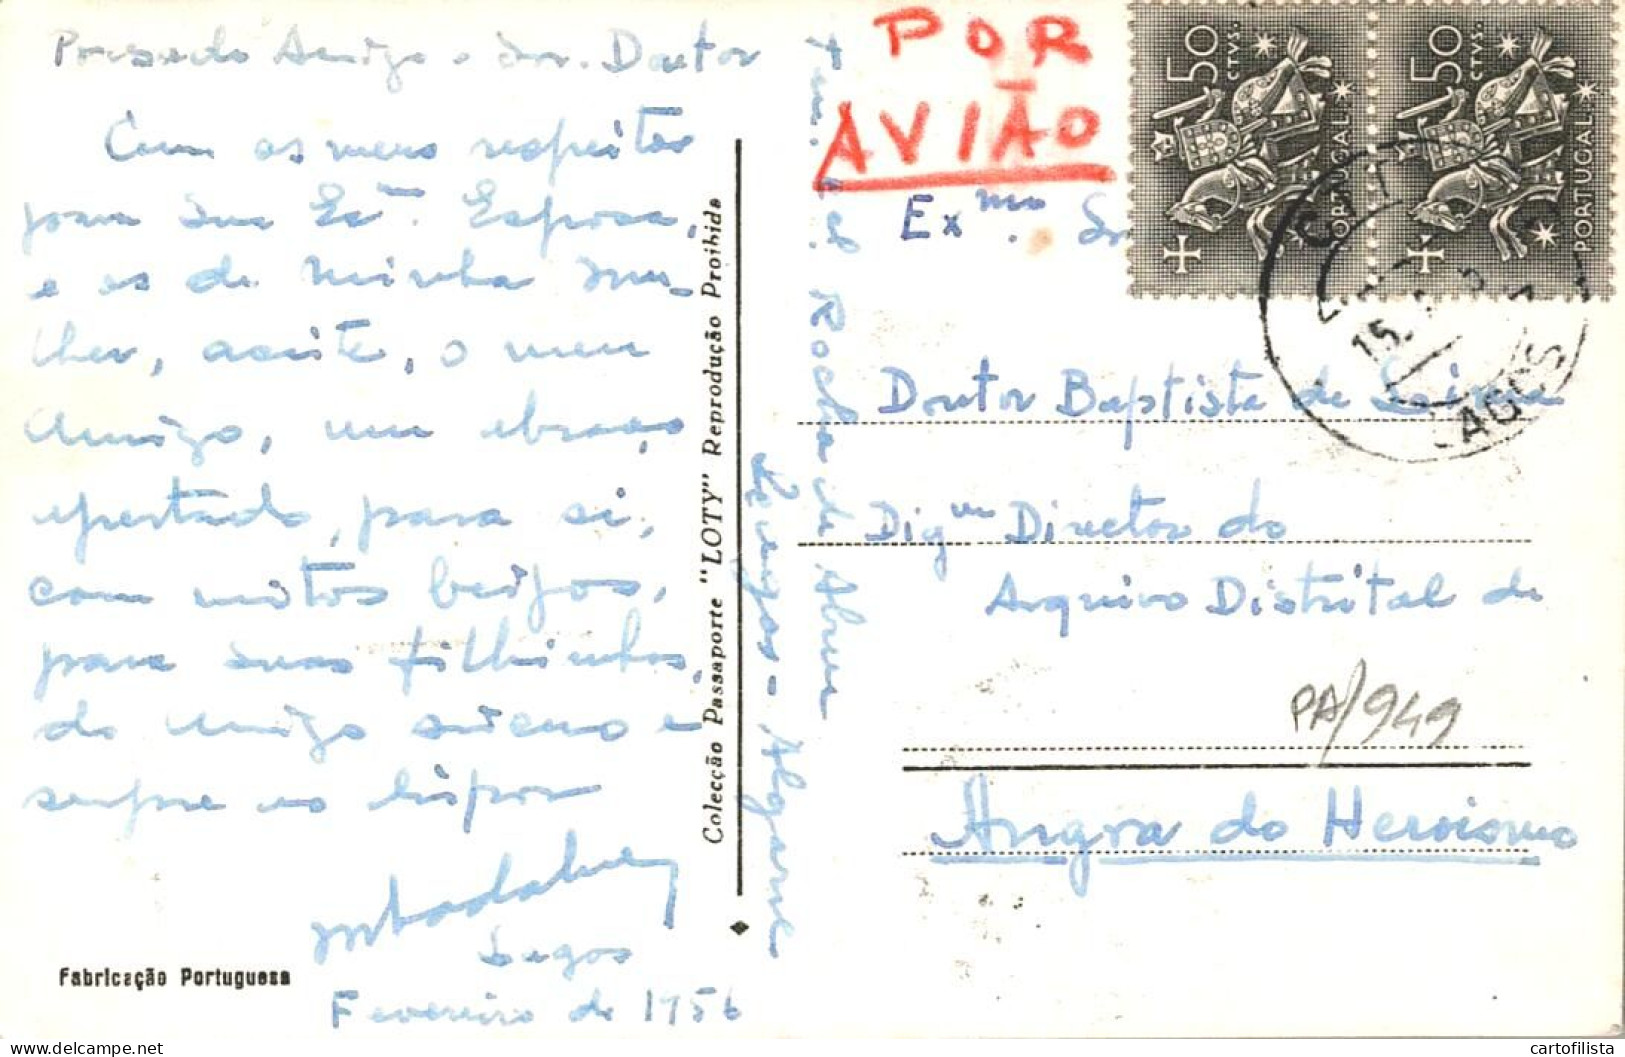 Presado Amigo e Snr. Doutor
Com os meus respeitos
para Sua Exma. Esposa,
e os de Minha Mu-
lher, aceite, o meu
Amigo, um abraço
apertado, para si,
com muitos beijos,
para seus filhinhos,
do amigo sincero e
sempre ao dispor
Lagos
Fevereiro de 1956
Fabricação Portuguesa
Colecção Passaporte "LOTY" Reproducão Proibida
Rocha de Abreu
Lagos - Algarve
POR
AVIÃO
50
CTVS.
PORTUGAL
50
CTVS.
PORTUGAL
LAGOS
15
Exmo. Sr
Doutor Baptista de Lima
Digmo Director do
Arquivo Distrital de
PA/949
Angra do Heroismo
cartofilista